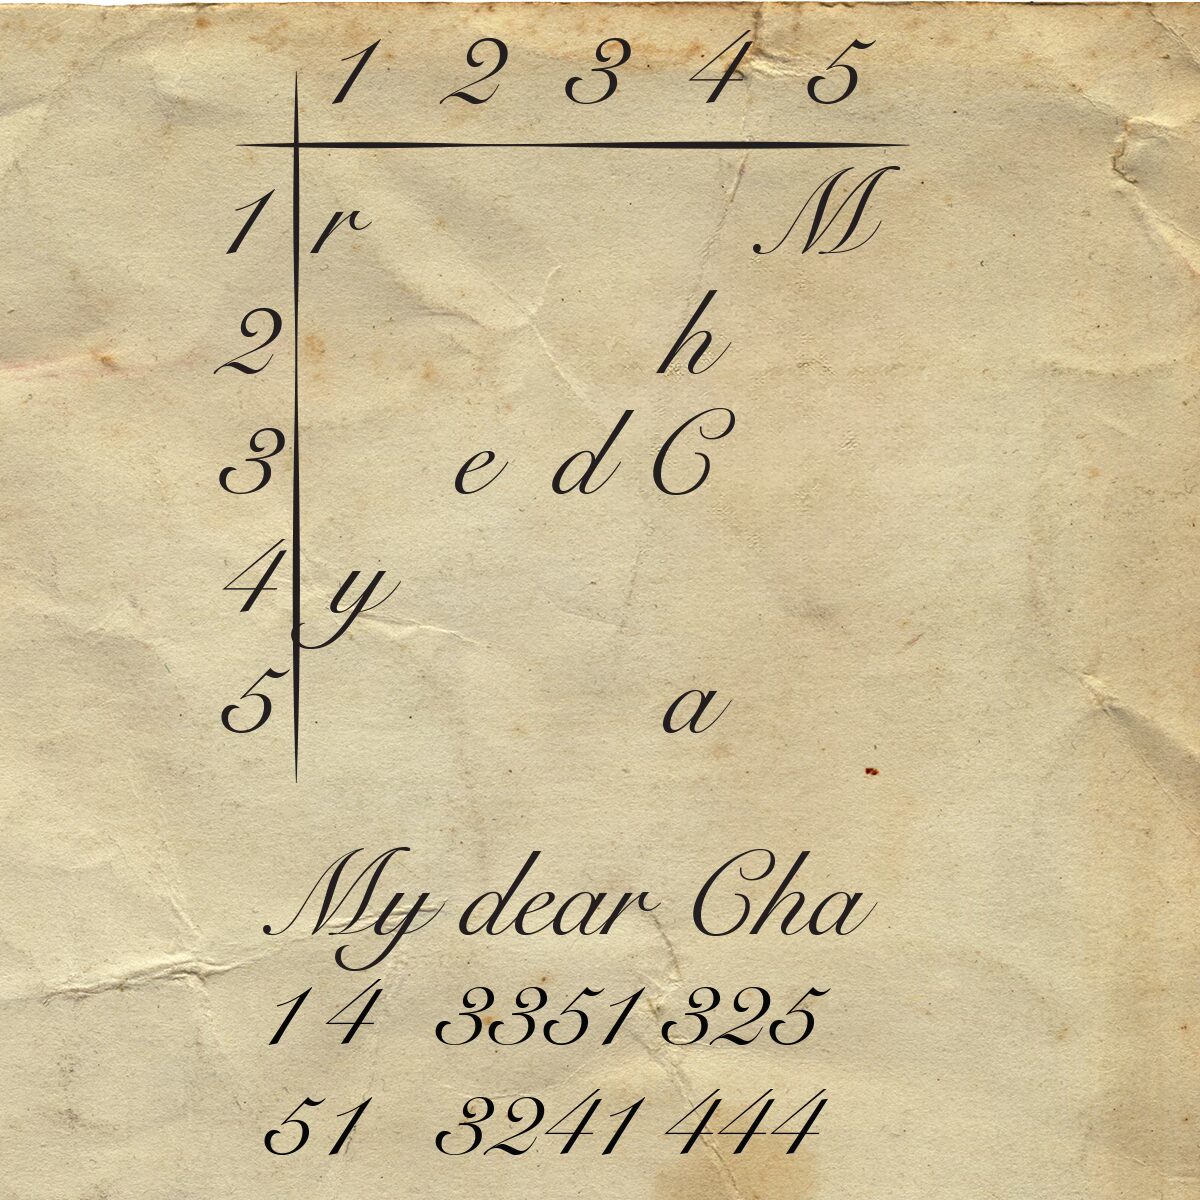 1 2 3 4 5
1 r M
2 h
3 e d C
4 y
5 a
My dear Cha
14 3351 325
51 3241 444